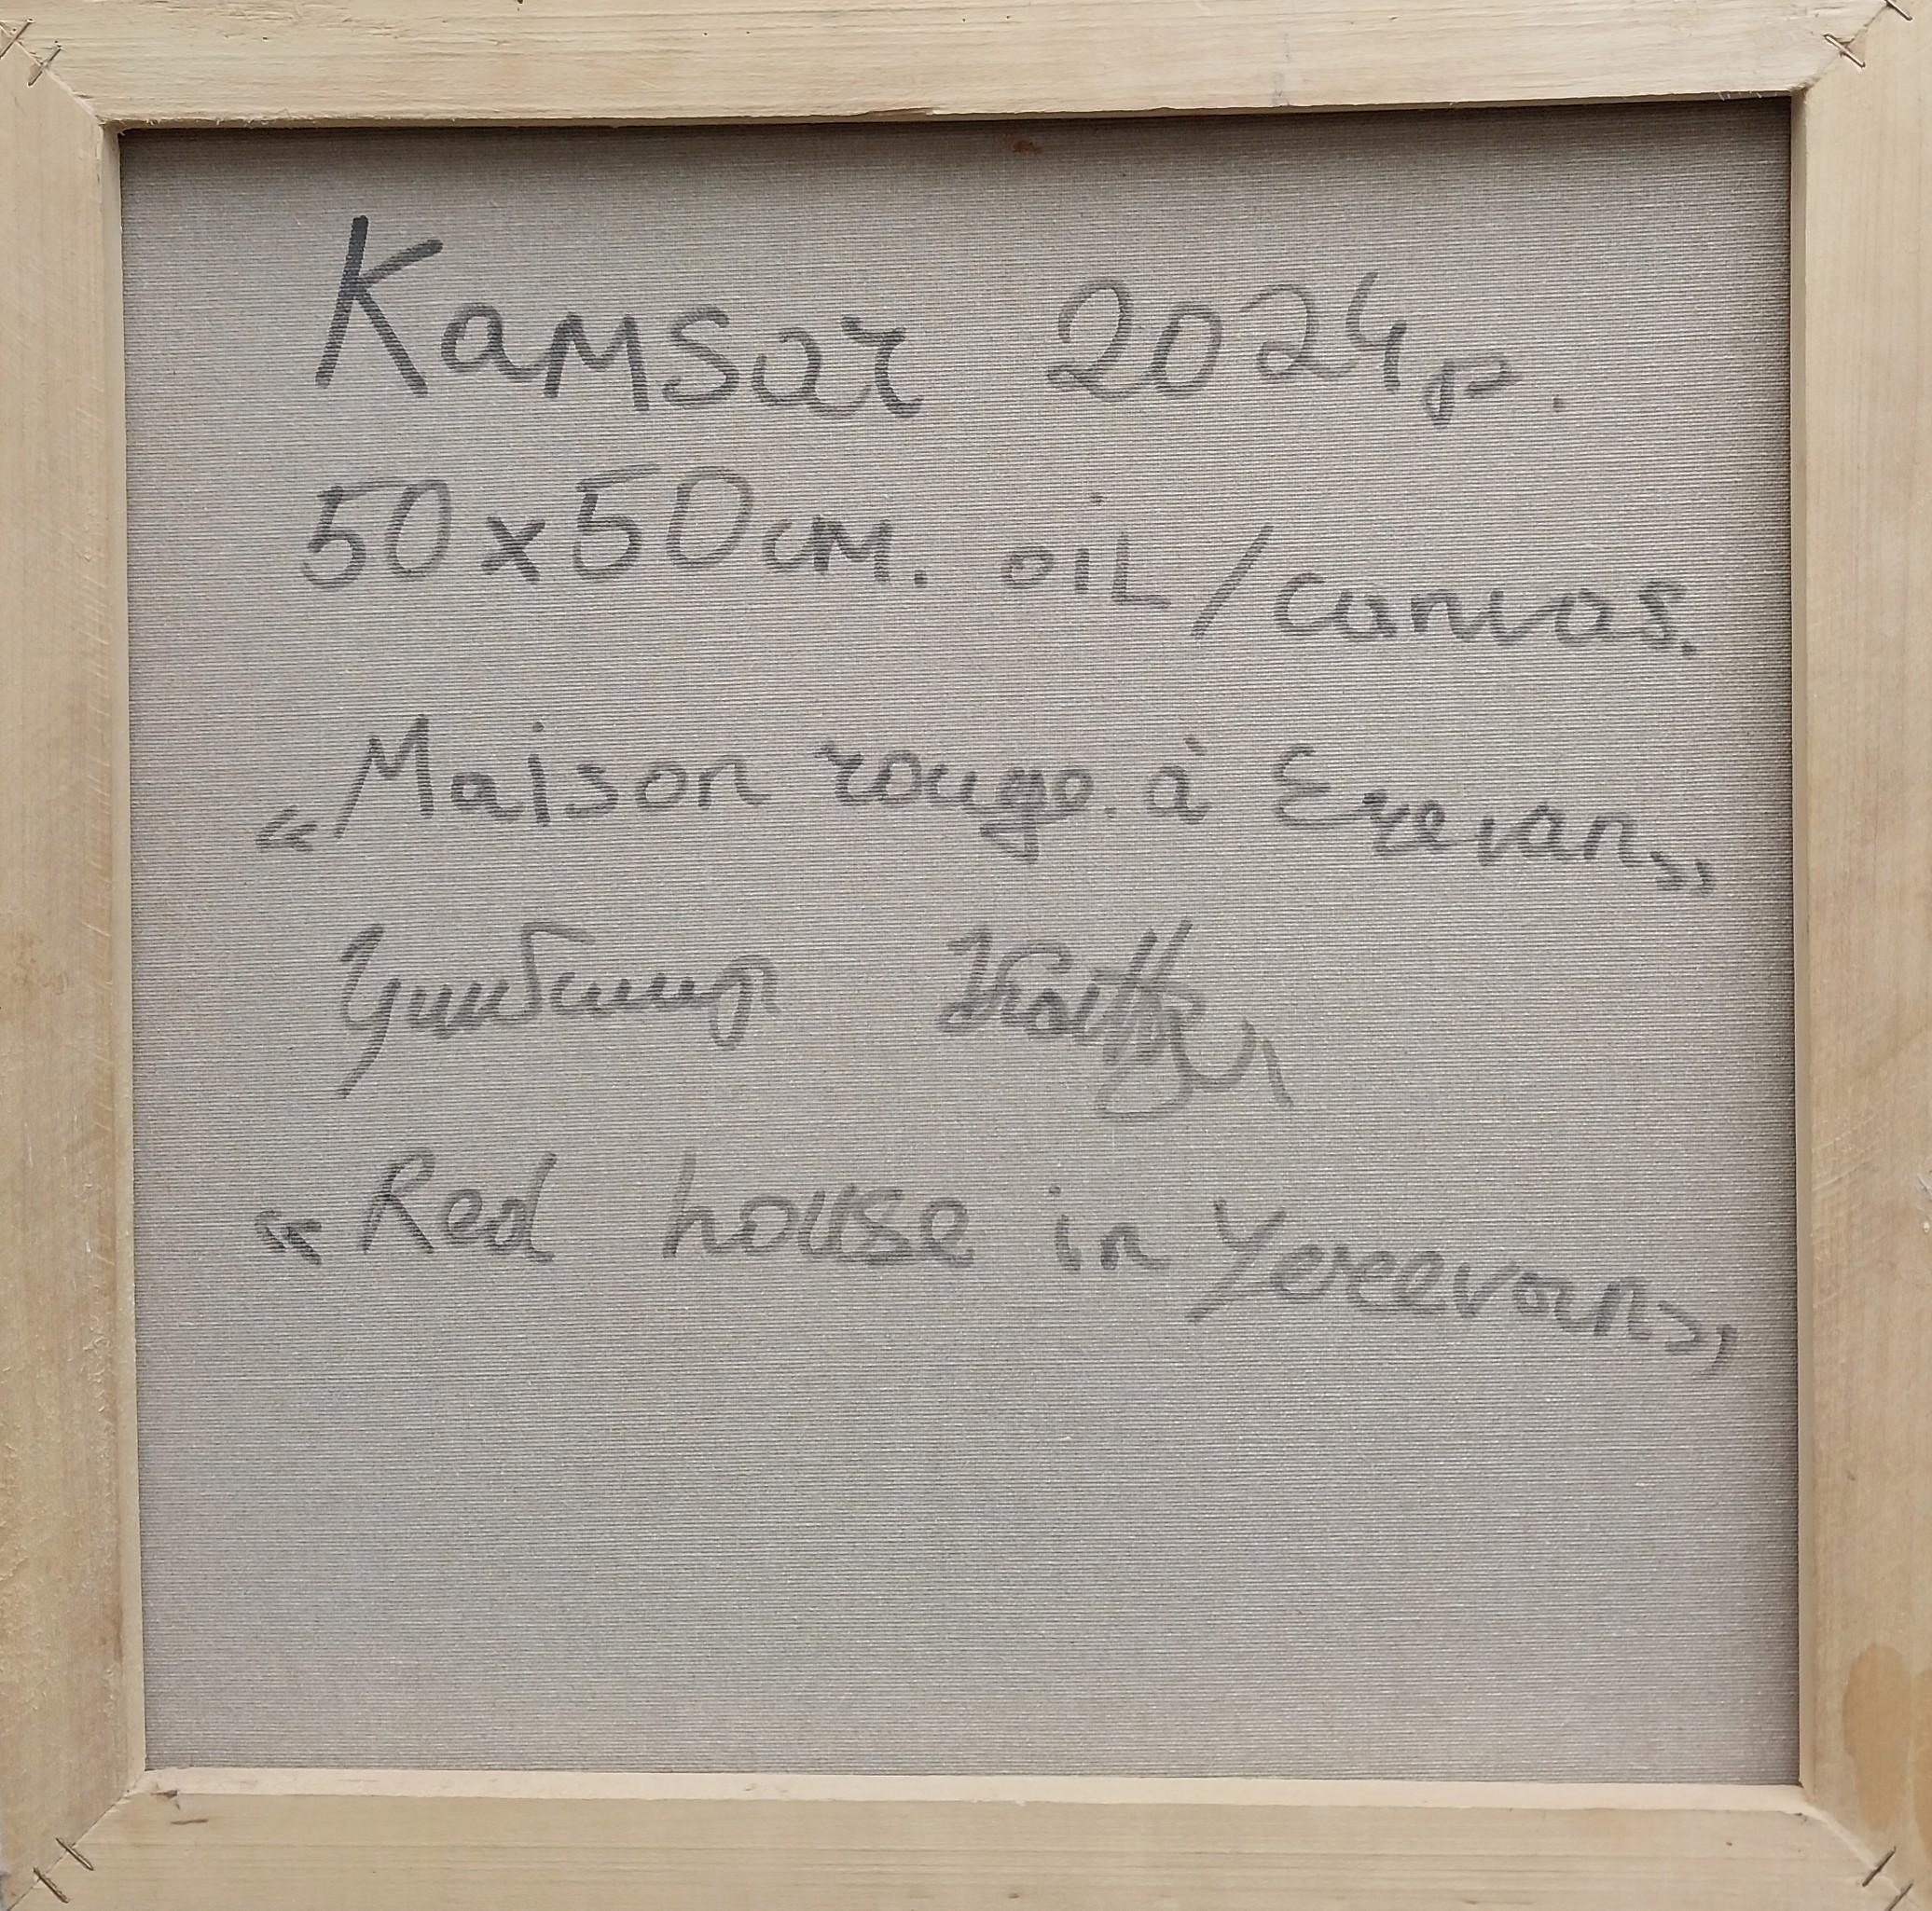 Kamsar 2024թ.
50x50cm. oiL/canvas.
"Maison rouge. à Erevan,,
"Red house in Yereevan,,